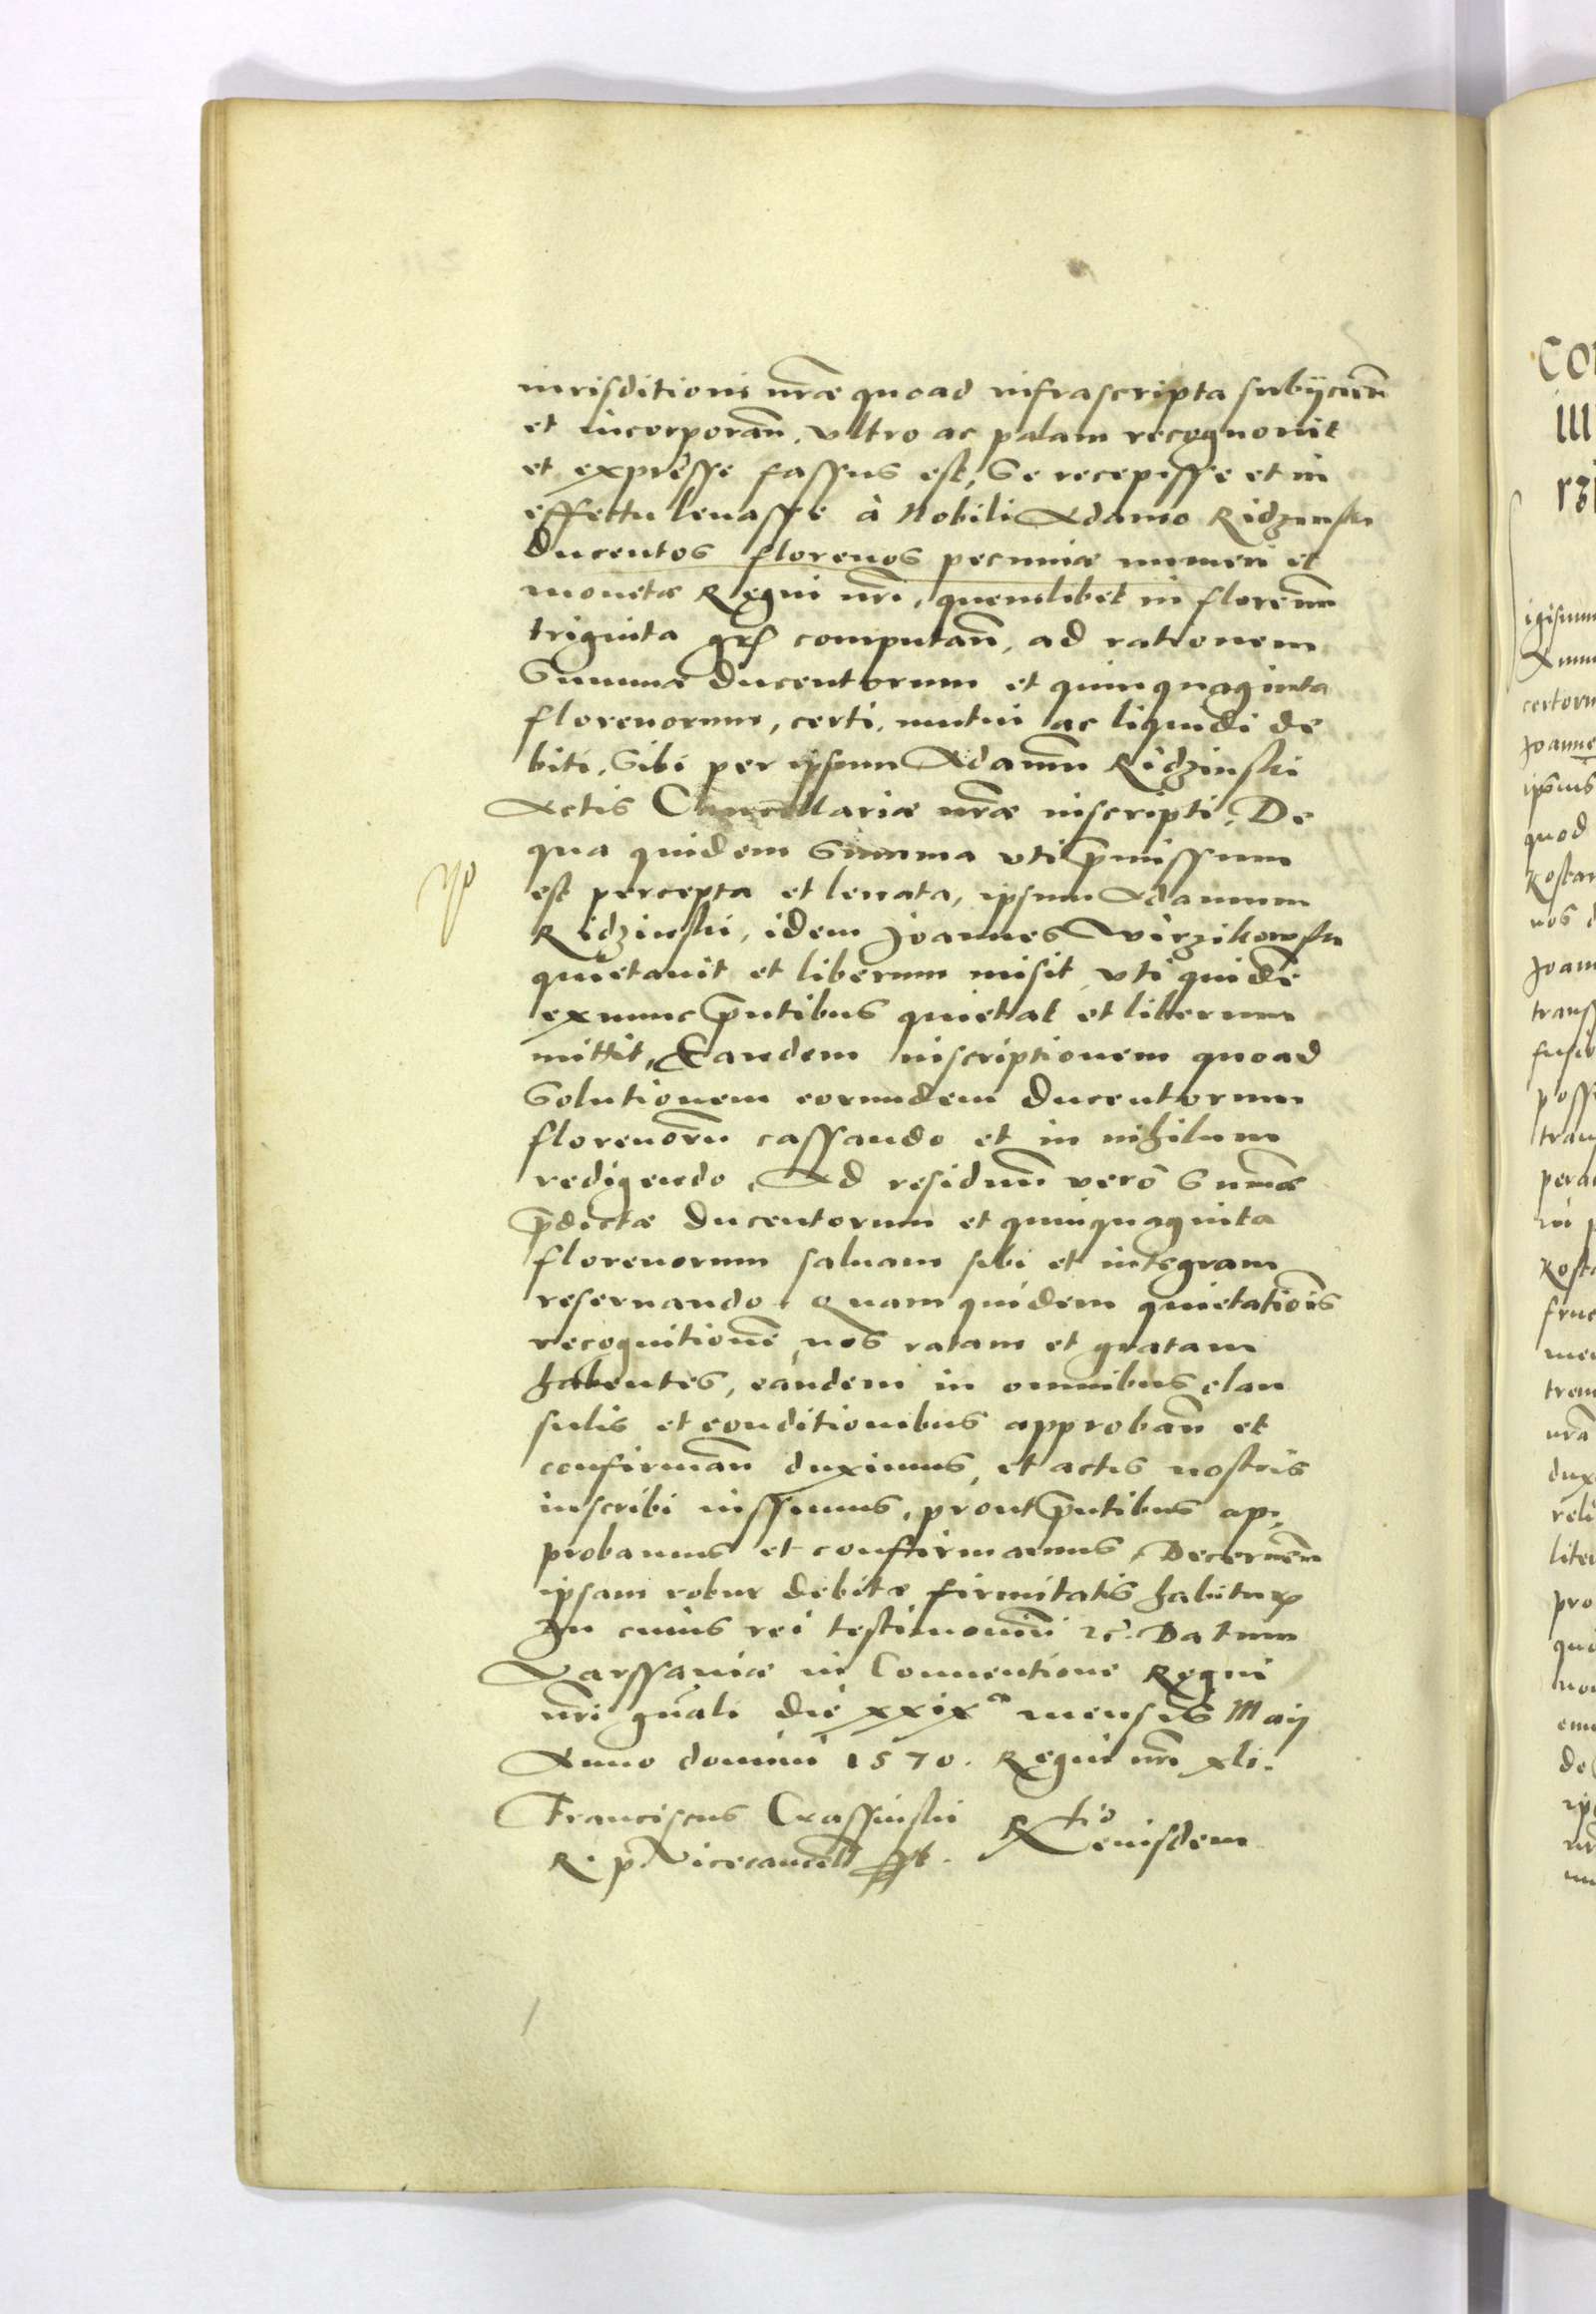 iurisditioni nrae quoad infrascripta subijcien̄
et incorporan̄, vltro ac palam recognouit
et expresse fassus est, Se recepisse et in
effectu leuasse à Nobili Adamo Ridzinski
Ducentos florenos pecuniae numeri et
monetae Regni nri, quemlibet in florenum
triginta gr̄ computan̄, ad rationem
Summae Ducentorum et quinquaginta
florenorum, certi, mutui ac liquidi de
biti, Sibi per ipsum Adamū Ridzinski
Actis Cancellariae nrae inscripti, De
qua quidem Summa vti p̄missum
est percepta et leuata, ipsum Adamum
Ridzinski, idem Joannes Wirzikowski
quietauit et liberum misit, vti quidē
exnunc p̄ntibus quietat et liberum
mittit, Eandem inscriptionem quoad
Solutionem eorundem Ducentorum
florenorū cassando et in nihilum
redigendo, Ad residuū verò Sum̄ae
p̄dictae Ducentorum et quinquaginta
florenorum saluam sibi et integram
reseruando. Quam quidem quietatiōis
recognitionē, nos ratam et gratam
habentes, eandem in omnibus clau
sulis et conditionibus approban̄ et
confirman̄ duximus, et actis nostris
inscribi iussimus, prout p̄ntibus ap,
probamus et confirmamus, Decernen̄
ipsam robur debitae firmitatis habitura͞
In cuius rei testimoniū &c. Datum
Varssauiae in Conuentione Regni
nri gn̄ali die xxix<sup>a</sup> mensis Maij
Anno domini 1570. Regni nri xli.
Franciscus Crassinski
R. p. Vicecancell sst.
R<sup>tio</sup> eiusdem